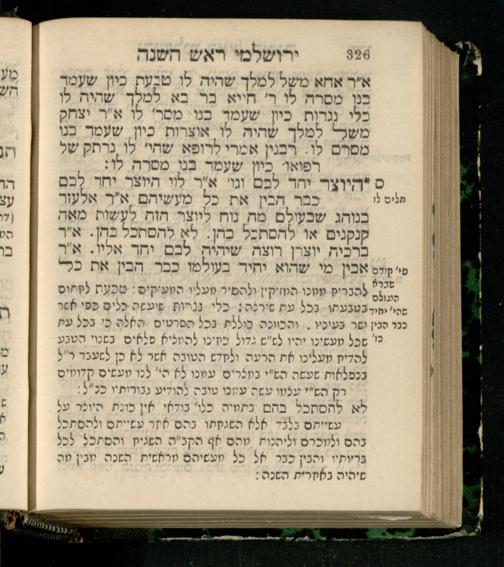 326 ירושלמי ראש השנה
א״ר אחא משל למלך שהיה לו טבעת כיון שעמד
בנו מסרה לו ר׳ חייא בר בא למלך שהיה לו
כלי נגרות כיון שעמד בנו מסר׳ לו א״ר יצחק
משל למלך שהיה לו אוצרות כיון שעמד בנו
מסרם לו. רבנין אמרי לרופא שהי׳ לו נרתק של
רפואו׳ כיון שעמד בנו מסרה לו:
ס *היוצר יחד לבם וגו׳ א״ר לוי היוצר יחד לבם
תלים לו
כבר הבין את כל מעשיהם א״ר אלעזר
בנוהג שבעולם מה נוח ליוצר הזה לעשות מאה
קנקנים או להסתכל בהן. לא להסתכל בהן. א״ר
ברכיה יוצרן רוצה שיהיה לבם יחד אליו. א״ר
אבין מי שהוא יחיד בעולמו כבר הבין את כל
פי׳ קודם
שברא
העולם
שהי׳ יחיד
כבר הבין
כו׳
להבריק ממנו המזיקין ולהסיר מעליו המעיקים: טבעת לחתום
בטבעתו בכל עת שירצה: כלי נגרות שיעשה כלים כפי אשר
ישר בעיניו. והכוונה כוללת בכל הפרטים האלה כי בכל עת
שכל מעשינו יהיו לש״ש גדול כחינו להוציא פלאים בשנוי הטבע
להרחיק מעלינו את הרעה ולקדש הטובה אשר לא כן לשעבר ר״ל
בנפלאות שעשה הש״י במצרים עמנו לא הי׳ לנו מעשים קדומים
רק הש״י עצמו עשה עמנו טובה להודיע גבורותיו כנ״ל:
לא להסתכל בהם בתמיה כלו׳ בודאי אין כונת היוצר על
עשייתם בלבד אלא השגחתו בהם אחר עשייתם ולהסתכל
בהם ולמכרם וליהנות מהם אף הקב״ה השגיח והסתכל לכל
בריותיו והבין כבר אל כל מעשיהם מראשית השנה מבין מה
שיהיה באחרית השנה: